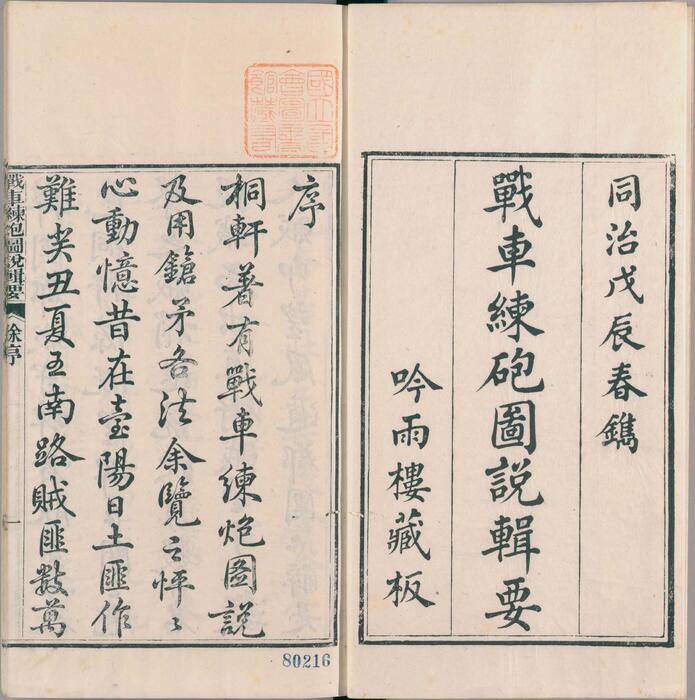 同治戊辰春鐫
戰車練砲圖說輯要
吟雨樓藏板
序
桐軒著有戰車練炮圖說
及用鎗矛各法余覽之怦〻
心動憶昔在臺陽日土匪作
難癸丑夏五南路賊匪數萬
戰車練炮圖說輯要
徐序
國立
會圖書
館藏書
80216